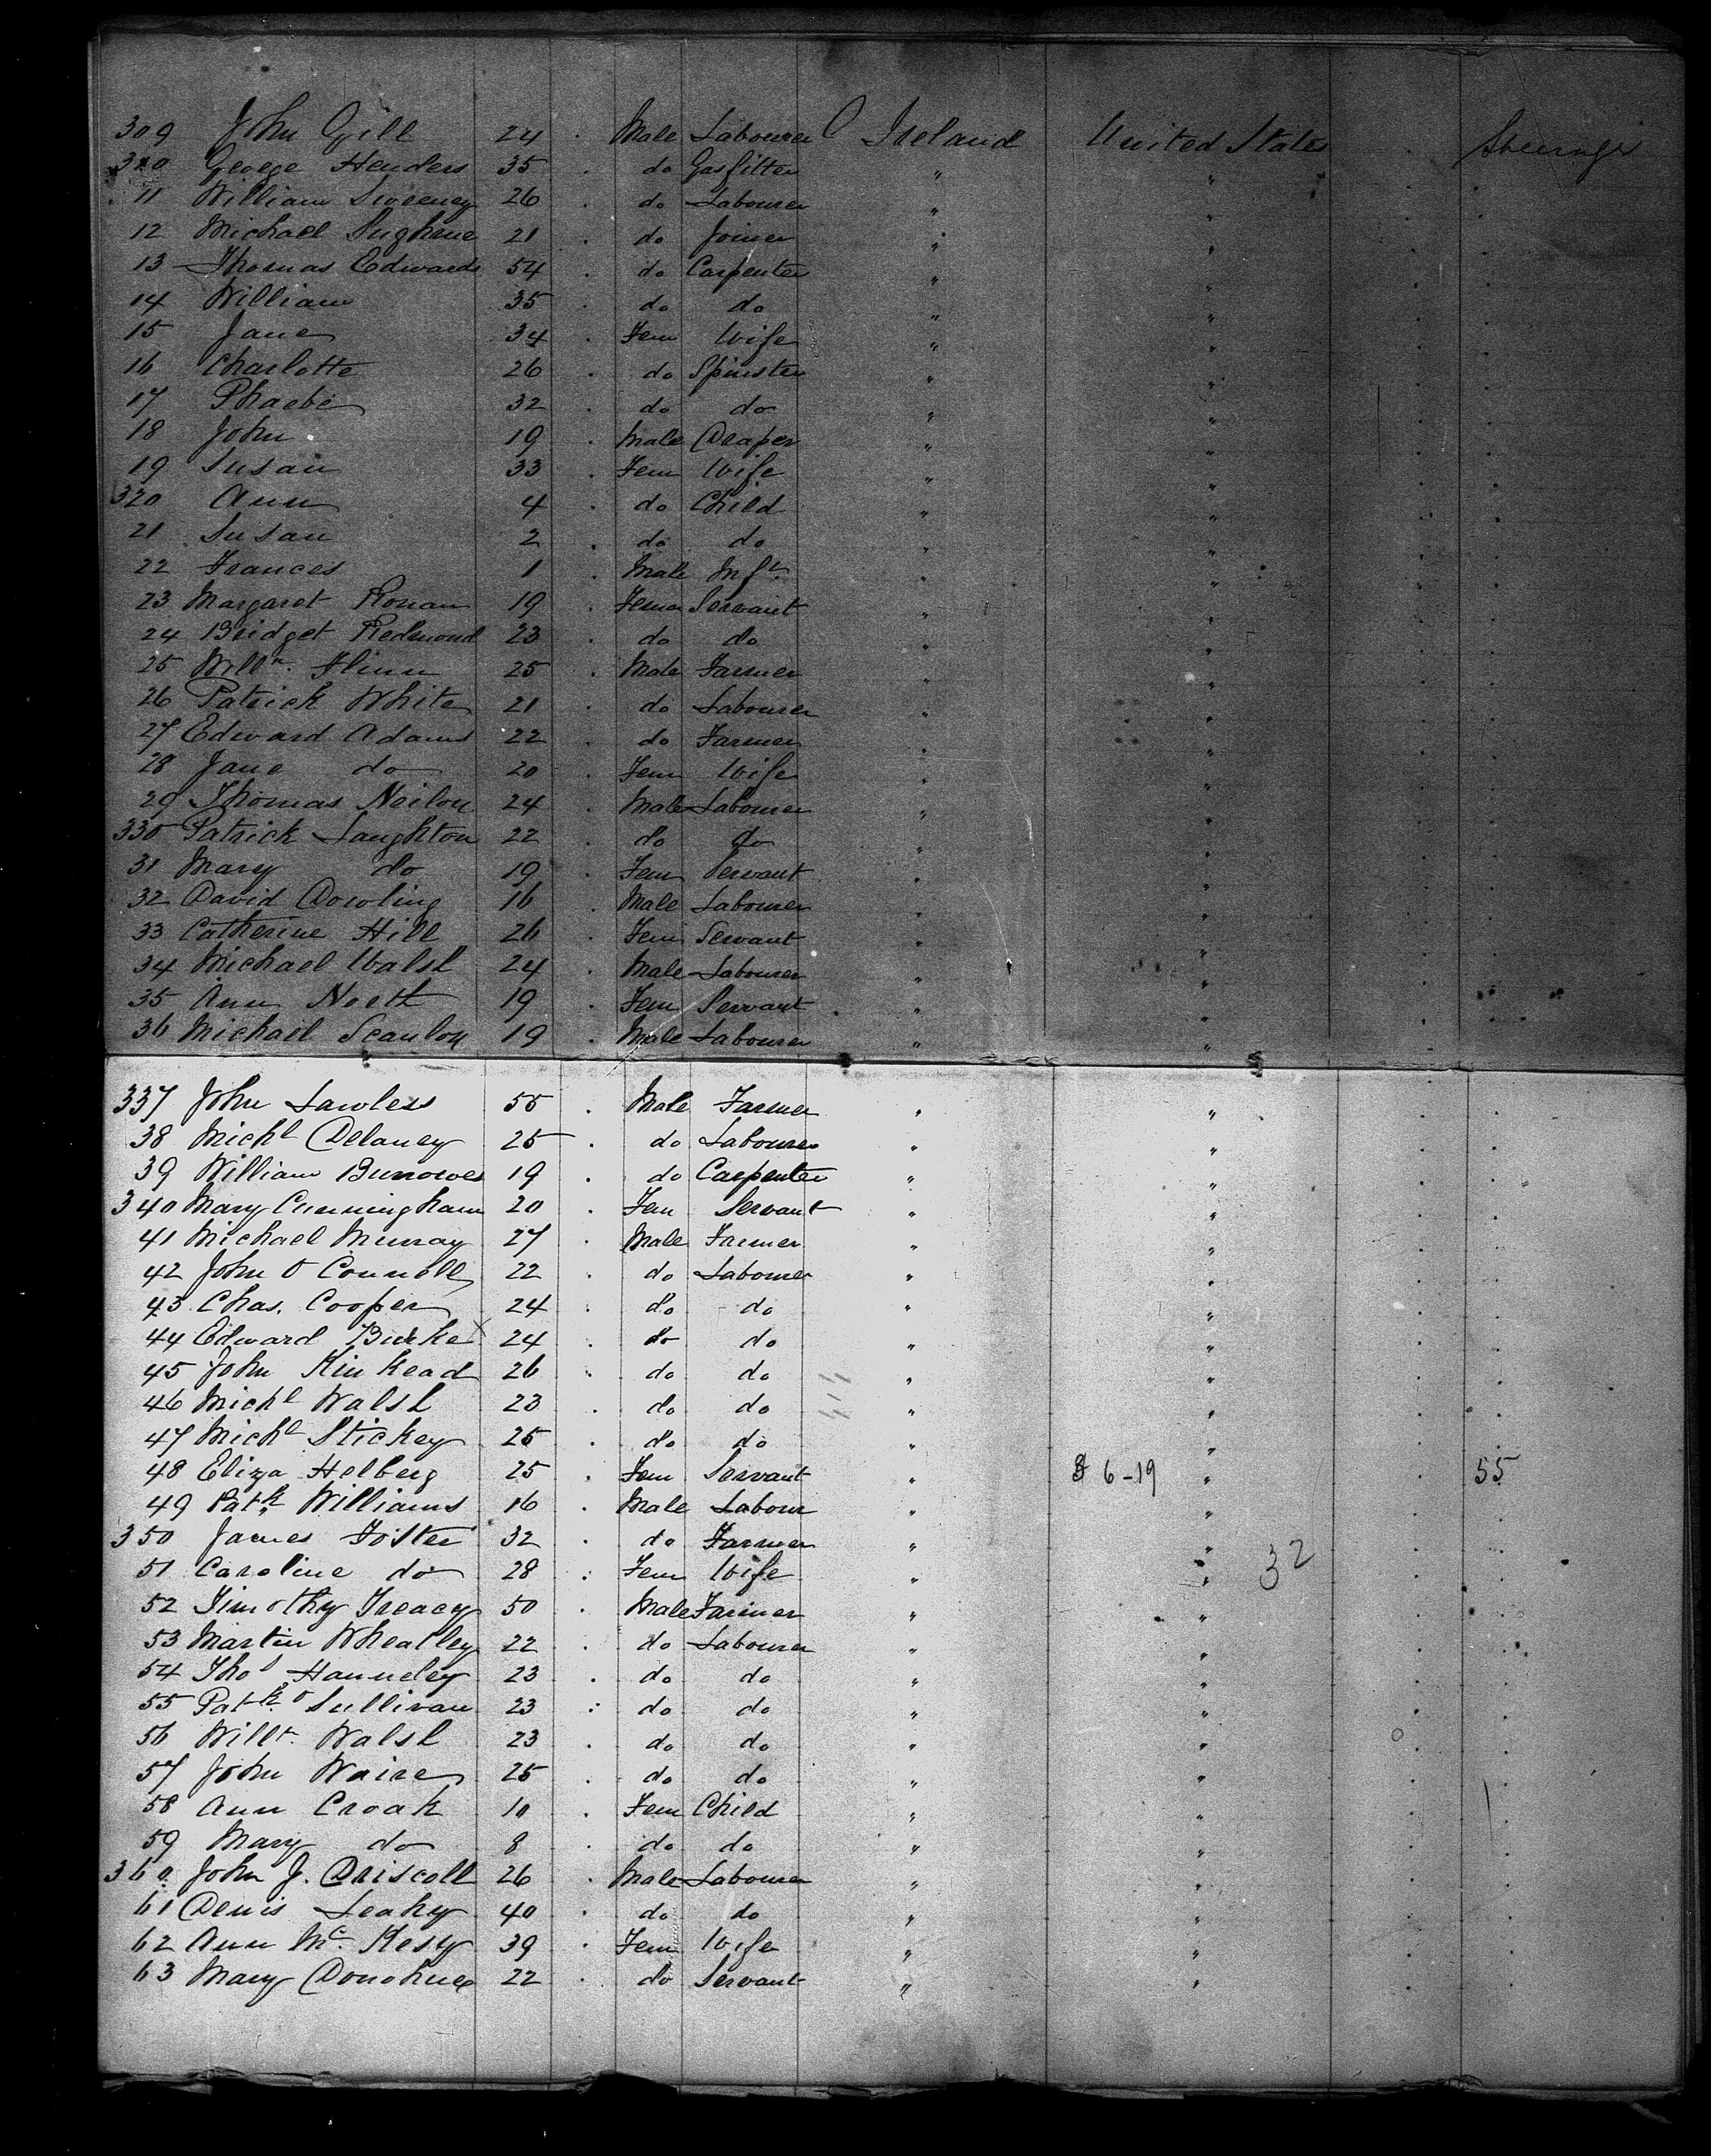 309 John Gill 24 Male Labourer Ireland United States Steerage
310 George Henders 35 do Gasfitter " "
11 William Sweeney 26 do Labourer " "
12 Michael 21 do Joiner " "
13 Thomas Edwards 54 do Carpenter " "
14 William 35 do do " "
15 Jane 34 Fem Wife " "
16 Charlotte 26 do Spinster " "
17 Phaebe 32 do do " "
18 John 19 Male Draper " "
19 Susan 33 Fem Wife " "
320 Ann 4 do Child " "
21 Susan 2 do do " "
22 Frances 1 Male Inft. " "
23 Margaret Ronan 19 Fem Servant " "
24 Bridget Redmond 23 do do " "
25 Willm. Flinn 25 Male Farmer " "
26 Patrick White 21 do Labourer " "
27 Edward Adams 22 do Farmer " "
28 Jane do 20 Fem Wife " "
29 Thomas Neilon 24 Male Labourer " "
330 Patrick Laughton 22 do do " "
31 Mary do 19 Fem Servant " "
32 David Dowling 16 Male Labourer " "
33 Catherine Hill 26 Fem Servant " "
34 Michael Walsh 24 Male Labourer " "
35 Ann North 19 Fem Servant " "
36 Michael Scanlon 19 Male Labourer " "
337 John Lawless 55 Male Farmer " "
38 Michl Delaney 25 do Labourer " "
39 William Burrowes 19 do Carpenter " "
340 Mary Cunningham 20 Fem Servant " "
41 Michael Murray 27 Male Farmer " "
42 John O Connell 22 do Labourer " "
43 Chas. Cooper 24 do do " "
44 Edward Burke X 24 do do " "
45 John Kinkead 26 do do " "
46 Michl Walsh 23 do do " "
47 Michl Stickey 25 do do " "
48 Eliza Helberg 25 Fem Servant " 6-19 " 55
49 Patk. Williams 16 Male Labour " "
350 James Foster 32 do Farmer " " 32
51 Caroline do 28 Fem Wife " "
52 Timothy Treacy 50 Male Farmer " "
53 Martin Wheatley 22 do Labourer " "
54 Thos Hanneley 23 do do " "
55 Patk. O Sullivan 23 do do " "
56 Willm. Walsh 23 do do " "
57 John Waire 25 do do " "
58 Ann Croak 10 Fem Child " "
59 Mary do 8 do do " "
360 John J. Driscoll 26 Male Labourer " "
61 Denis Leahy 40 do do " "
62 Ann Mc. Kesy 39 Fem Wife " "
63 Mary Donohue 22 do Servant " "